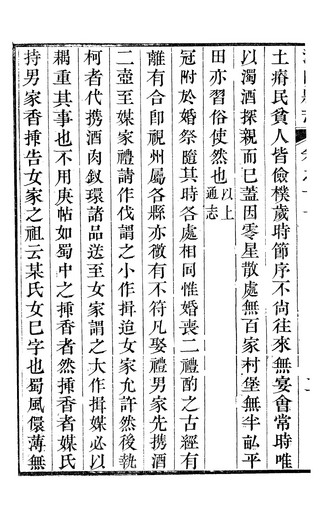 土瘠民貧人皆儉樸歲時節序不尙往來無宴會常時唯
以濁酒探親而已蓋因零星散處無百家村堡無半畆平
田亦習俗使然也以上通志
冠附於婚祭隨其時各處相同惟婚喪二禮酌之古經有
離有合卽視州屬各縣亦徵有不符凡娶禮男家先携酒
二壺至媒家禮請作伐謂之小作揖迨女家允許然後執
柯者代携酒肉釵環諸品送至女家謂之大作揖媒必以
耦重其事也不用庚帖如蜀中之揷香者然揷香者媒氏
持男家香揷告女家之祖云某氏女已字也蜀風儇薄無